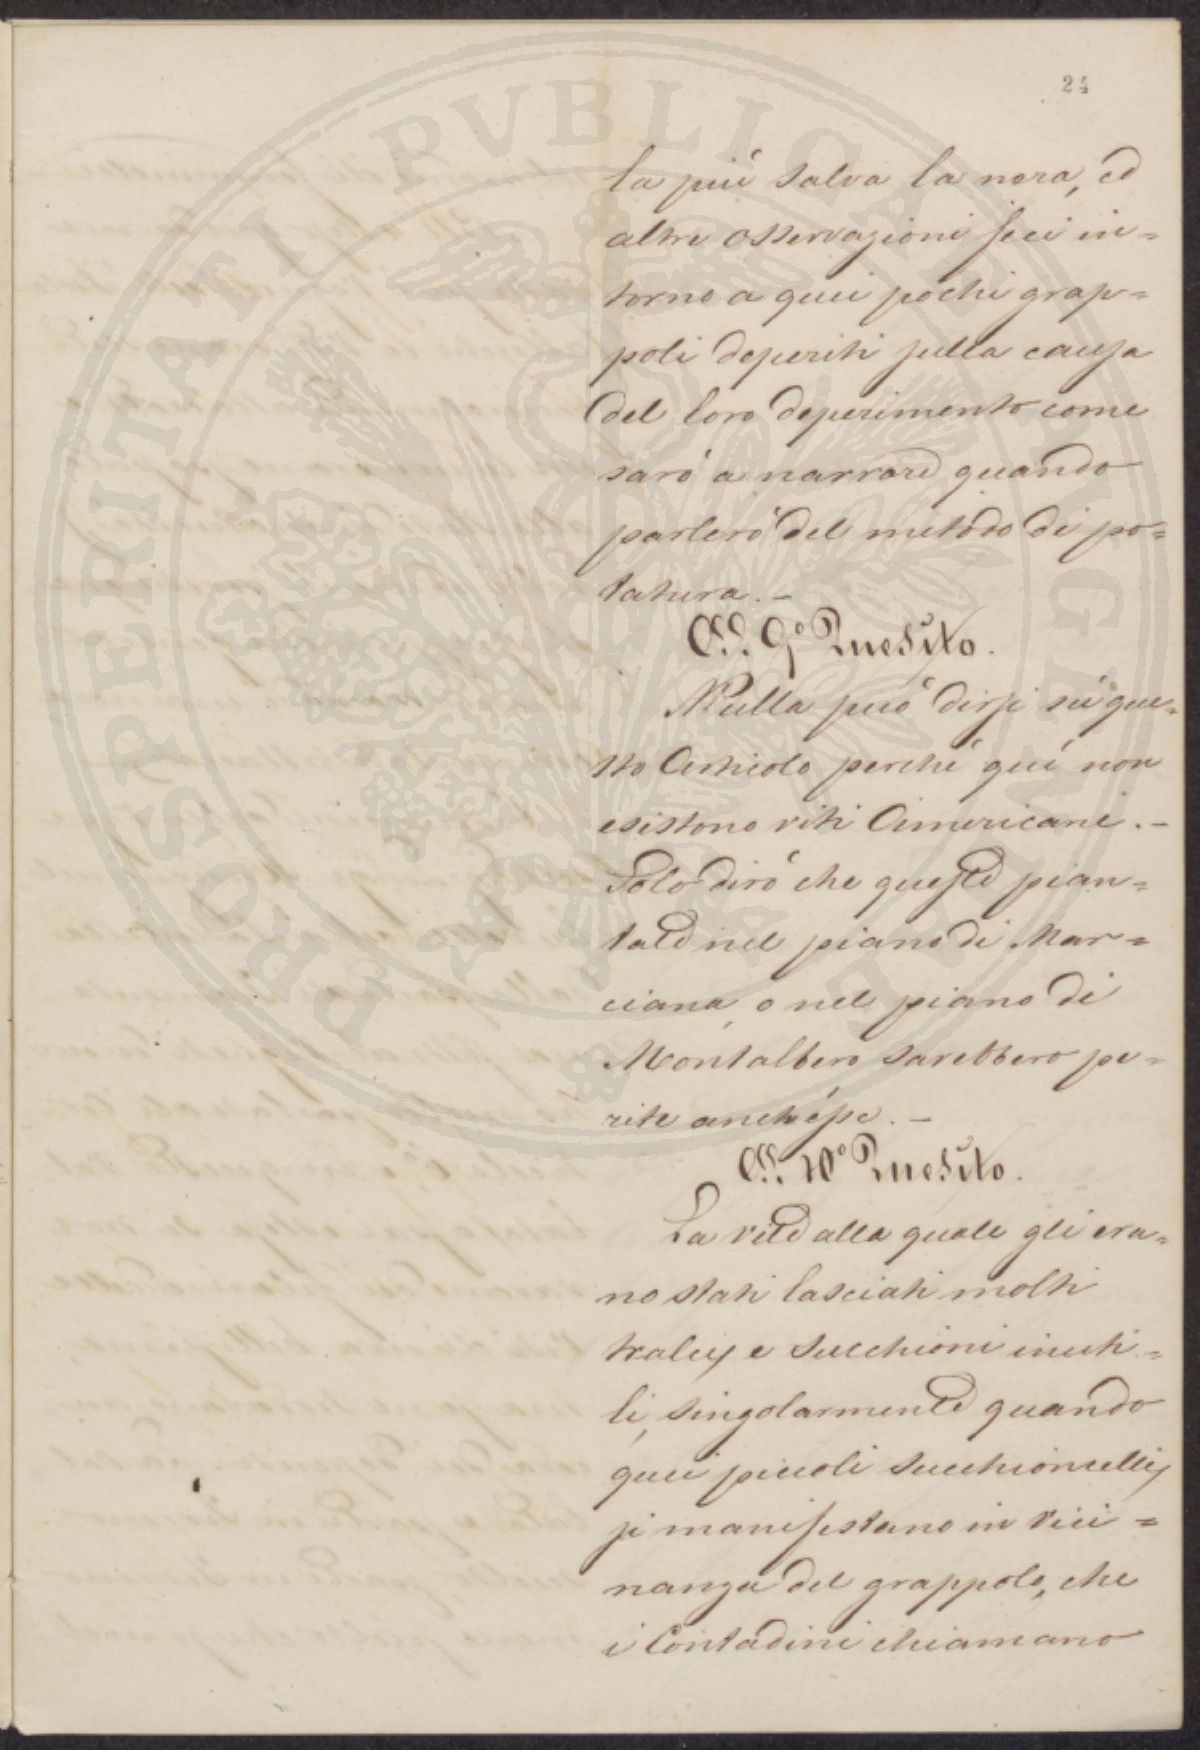 PROSPERITATI PVBLICAE AVGENDAE
24
la più salva la nera, ed
altre osservazioni feci in=
torno a quei pochi grap=
poli deperiti sulla causa
del loro deperimento come
sarò a narrare quando
parlerò del metodo di po=
tatura. –
Al 9º Quesito.
Nulla può dirsi sù que=
sto Articolo perché quì non
esistono viti Americane. –
Solo dirò che queste pian=
tate nel piano di Mar=
ciana, o nel piano di
Montalbero sarebbero pe=
rite anch'esse. –
Al 10º Quesito.
La vite alla quale gli era=
no stati lasciati molti
tralcj e succhioni inuti=
li, singolarmente quando
quei piccoli succhioncellj
si manifestano in vici=
nanza del grappolo, che
i Contadini chiamano